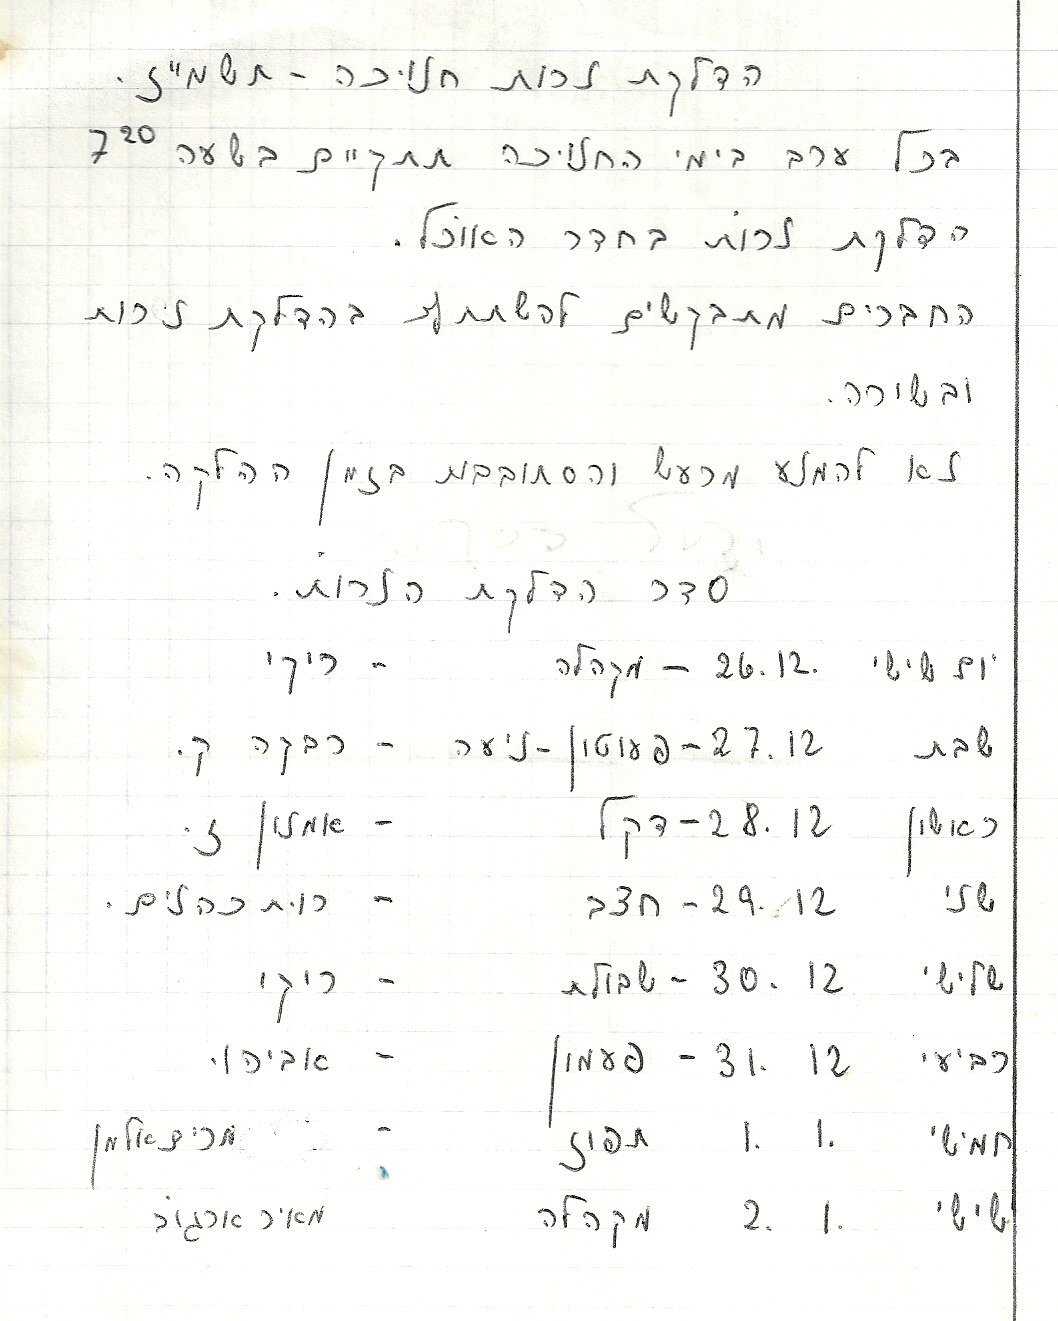 הדלקת נרות חנוכה - תשמ"ז.
בכל ערב בימי החנוכה תתקיים בשעה 7²⁰
הדלקת נרות בחדר האוכל.
החברים מתבקשים להשתתף בהדלקת נרות
ובשירה.
נא להמנע מרעש והסתובבות בזמן ההלקה.
סדר הדלקת הנרות.
יום שישי 26.12. - מקהלה - ריקי
שבת 27.12 - פעוטון - ניעה - רבקה ק.
ראשון 28.12 - דקל - אמנון ז.
שני 29.12 - חצב - רות כהנים.
שלישי 30.12 - שבולת - ריקי
רביעי 31.12 - פעמון - אביהו.
חמישי 1.1. תפוז - מרים אלמן
שישי 2.1. מקהלה מאיר ארגוב